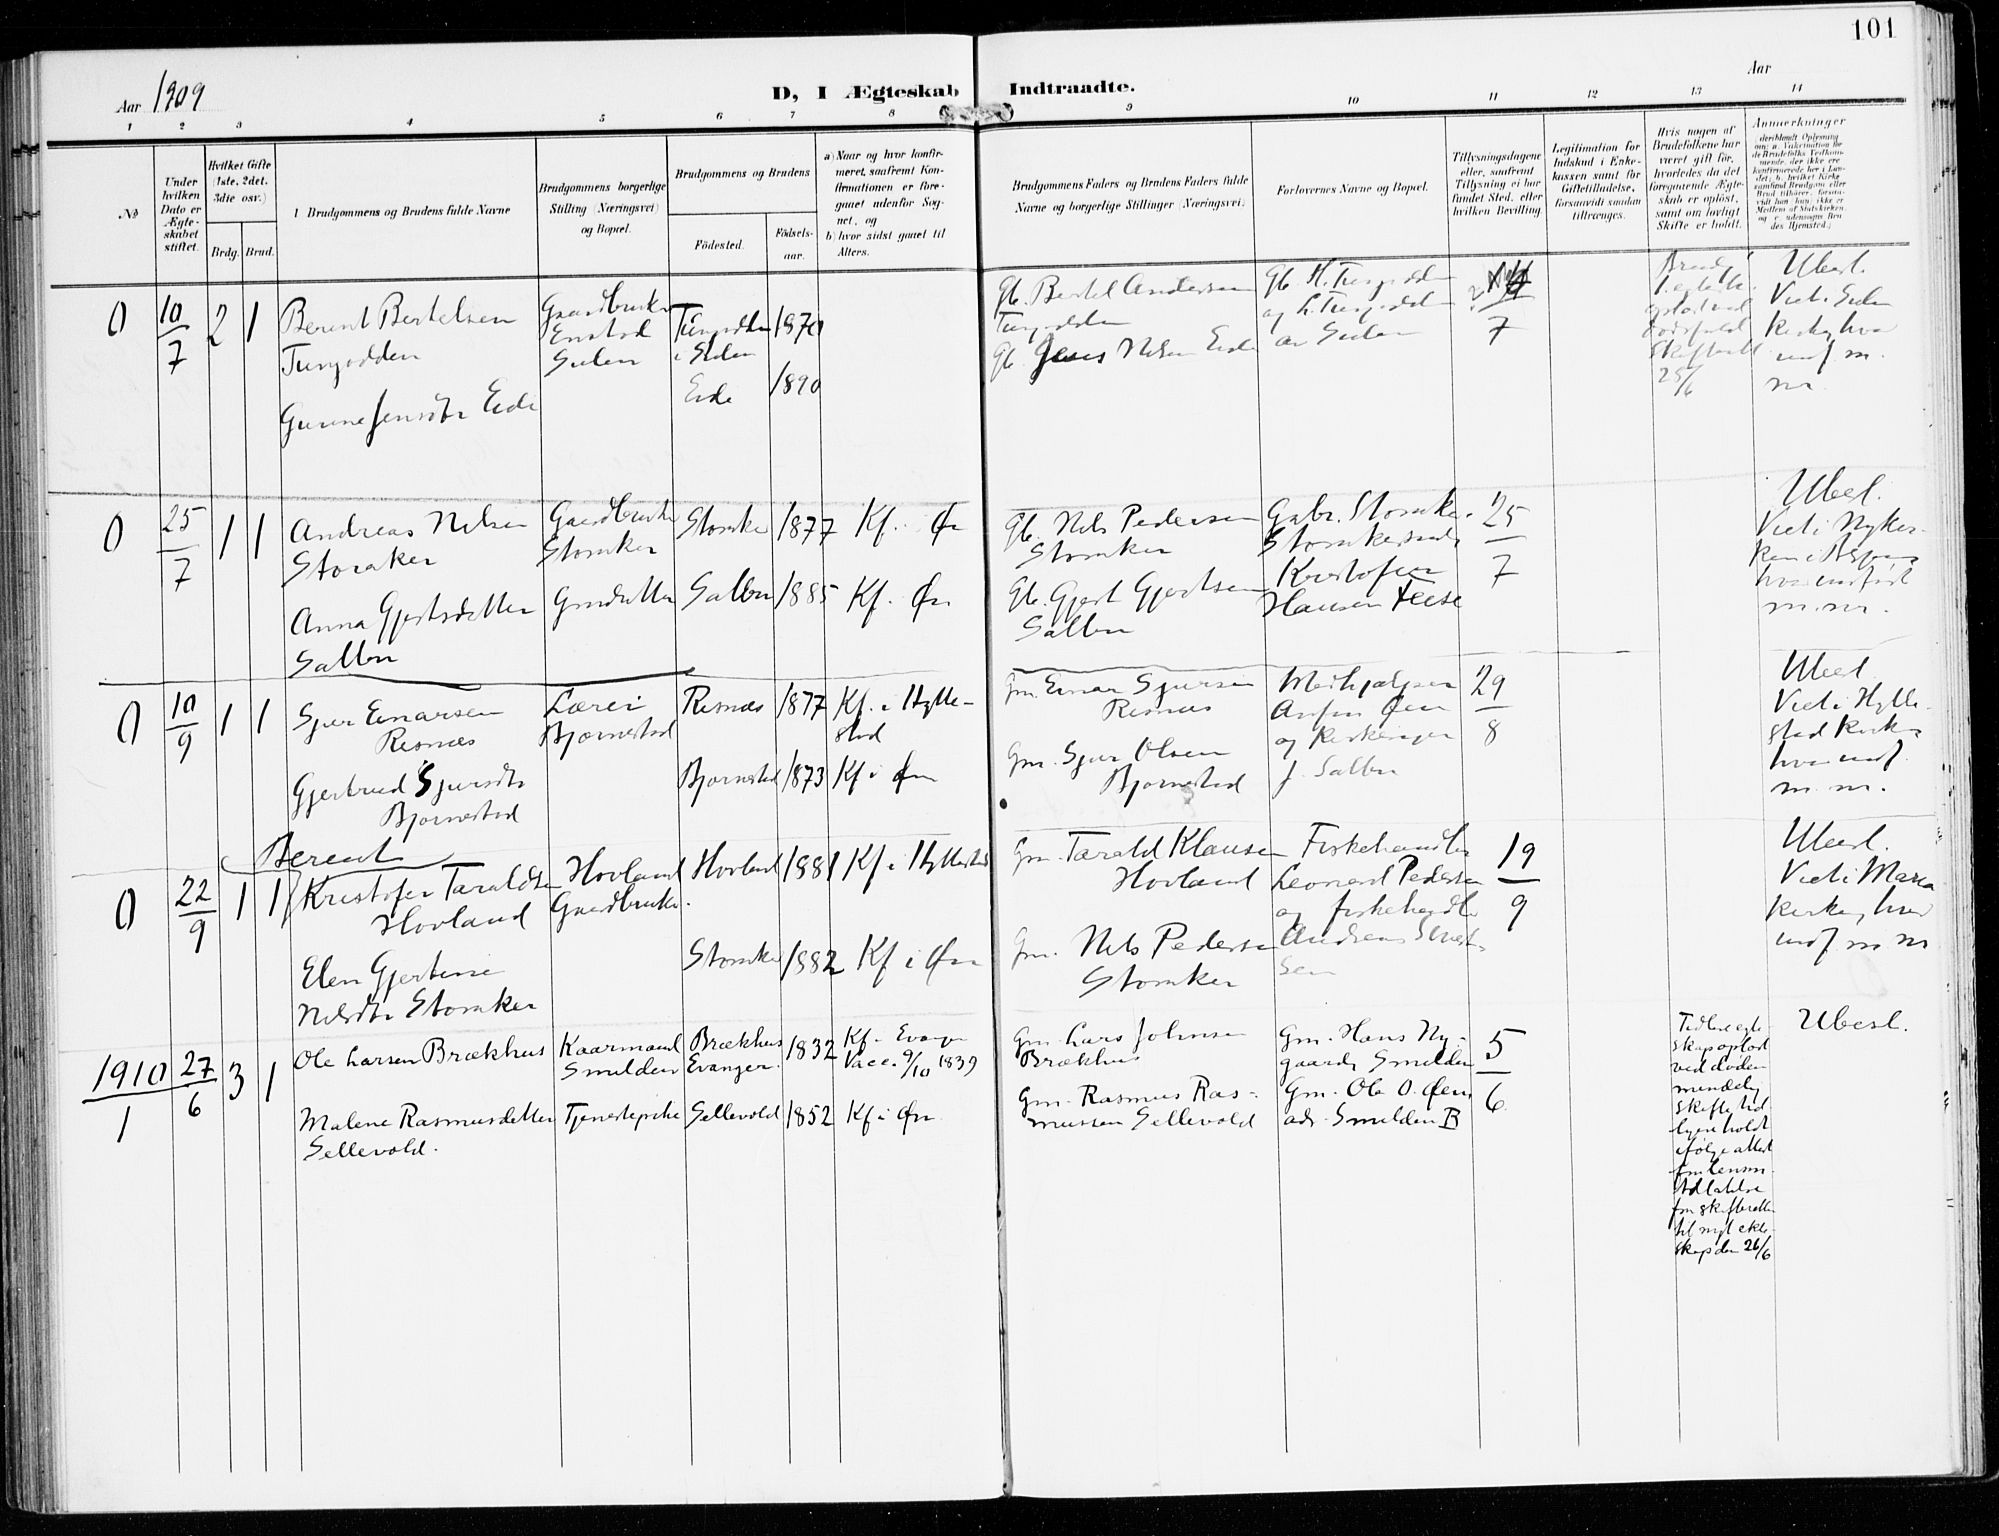 101
Aar 1909
D, I Ægteskab Indtraadte.
Aar
1 2 3 4 5 6 7 8 9 10 11 12 13 14
No
Under hvilken Dato er Ægteskabet stiftet.
Hvilket Gifte (1ste, 2det, 3die osv.)
Brdg. Brud.
Brudgommens og Brudens fulde Navne
Brudgommens borgerlige Stilling (Næringsvei) og Bopæl.
Brudgommens og Brudens
Födested.
Födselsaar.
a) Naar og hvor konfirmeret, saafremt Konfirmationen er foregaaet udenför Sognet, og
b) hvor sidst gaaet til Alters.
Brudgommens Faders og Brudens Faders fulde Navne og borgerlige Stillinger (Næringsvei).
Forlovernes Navne og Bopæl.
Tillysningsdagene eller, saafremt Tillysning ei har fundet Sted, efter hvilken Bevilling.
Legitimation for Indskud i Enkekassen samt for Giftetilladelse, forsaavidt saadan tiltrænges.
Hvis nogen af Brudefolkene har været gift för, hvorledes da det foregaaende Ægteskab er oplöst, samt om lovligt Skifte er holdt.
Anmerkninger
0 10/7 2 1
Berent Bertelsen
Tungodden
Gaardbruker
Sulen
Tungodden
i Sulen
1870
Gb. Bertel Andersen
Tungodden
Gb. H. Tungodden
og L. Tungodden
av Sulen
7
25/6
Ubesl.
Viet i Sulen
kirke, hvor
indf. m.
nr.
Gunne Jensdtr Eide
Eide
1890
Gb. Jens Nilsen Eide
0 25/7 1 1
Andreas Nilsen
Storaker
Gaardbruker
Storaker
Storaker
1877
Kf. i Øn
Gb. Nils Pedersen
Storaker
Gabr. Storaker
Kristofer
Hansen
25/7
Ubesl.
Viet i Nykirken i Bergen
hvor indført
m. nr.
Anna Gjertsdatter
Salbu
Salbu
1885
Kf. i Øn
Gb. Gjert Gjertsen
Salbu
0 10/9 1 1
Sjur Einarsen
Risnes
Lærer i
Bjørnestad
Risnes
1877
Kf. i Hyllestad
Gm. Einar Sjursen
Risnes
Medhjælper
Anfin Øen
og Kirkesanger
J. Salbu
29/8
Ubesl.
Viet i Hyllestad Kirke
hvor indf.
m. nr.
Gjertrud Sjursdtr
Bjørnestad
Bjørnestad
1873
Kf. i Øn
Gm. Sjur Olsen
Bjørnestad
Berent
0 22/9 1 1
Kristofer Taraldsen
Hovland
Hovland
Gaardbruker.
Hovland
1881
Kf. i Hyllestad
Gm. Tarald Klausen
Hovland
Fiskehandler
Leonard Pedersen
og fiskehandler
Andreas
19/9
Ubesl.
Viet i Maria
kirke, hvor
indf. m nr
Elen Gjertine
Nilsdtr Storaker
Storaker
1882
Kf i Øn
Gm. Nils Pedersen
Storaker
1910
1 27/6 3 1
Ole Larsen Brækhus
Kaarmand
Smulden
Brækhus
Evanger.
1832
Kf. i Evanger
Vacc. 9/10 1839
Gm. Lars Johnsen
Brækhus
Gm. Hans Nygaard, Smulden
Gm. Ole O. Øen,
adr. Smulden B
5/6
Tidligere egteskap opløst
ved døden
mindelig
skifte tidligere holdt
ifølge attest
fra lensm.
Tilladelse
fra skifteretten
til nyt ekteskap den 26/6
Ubesl.
Malene Rasmusdatter
Sellevold.
Tjenestepike
Sellevold
1852
Kf i Øn
Gm. Rasmus Rasmussen Sellevold